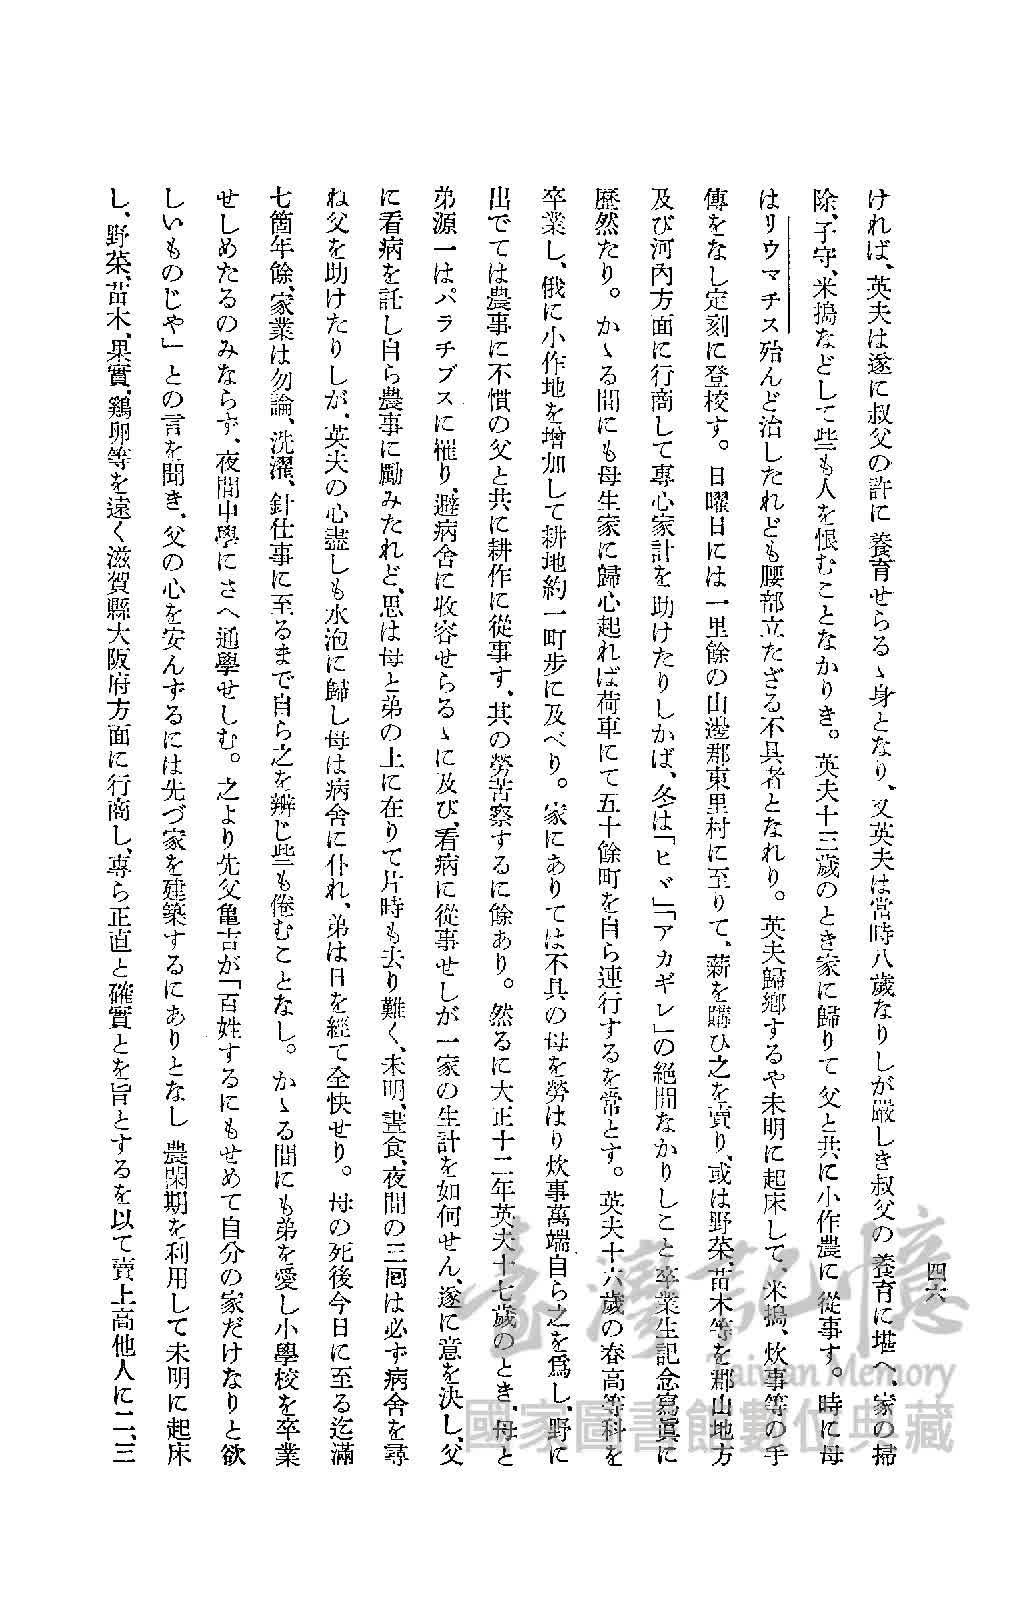 四六
ければ、英夫は遂に叔父の許に養育せらるゝ身となり、又英夫は當時八歲なりしが嚴しき叔父の養育に堪へ、家の掃
除、子守、米搗などして些も人を恨むことなかりき。英夫十三歲のとき家に歸りて父と共に小作農に從事す。時に母
はリウマチス殆んど治したれども腰部立たざる不具者となれり。英夫歸鄕するや未明に起床して、米搗、炊事等の手
傳をなし定刻に登校す。日曜日には一里餘の山邊郡東里村に至りて、薪を購ひ之を賣り、或は野菜、苗木等を郡山地方
及び河內方面に行商して專心家計を助けたりしかば、冬は「ヒヾ」「アカギレ」の絕間なかりしこと卒業生記念寫眞に
歷然たり。かゝる間にも母生家に歸心起れば荷車にて五十餘町を自ら連行するを常とす。英夫十六歲の春高等科を
卒業し、俄に小作地を增加して耕地約一町步に及べり。家にありては不具の母を勞はり炊事萬端自ら之を爲し、野に
出でては農事に不慣の父と共に耕作に從事す、其の勞苦察するに餘あり。然るに大正十二年英夫十七歲のとき、母と
弟源一はパラチブスに罹り、避病舍に收容せらるゝに及び、看病に從事せしが一家の生計を如何せん、遂に意を決し、父
に看病を託し自ら農事に勵みたれど、思は母と弟の上に在りて片時も去り難く、未明、晝食、夜間の三囘は必ず病舍を尋
ね父を助けたりしが、英夫の心盡しも水泡に歸し母は病舍に仆れ、弟は日を經て全快せり。母の死後今日に至る迄滿
七箇年餘、家業は勿論、洗濯、針仕事に至るまで自ら之を辨じ些も倦むことなし。かゝる間にも弟を愛し小學校を卒業
せしめたるのみならず、夜間中學にさへ通學せしむ。之より先父龜吉が「百姓するにもせめて自分の家だけなりと欲
しいものじや」との言を聞き、父の心を安んずるには先づ家を建築するにありとなし農閑期を利用して未明に起床
し、野菜、苗木、果實、鷄卵等を遠く滋賀縣大阪府方面に行商し、專ら正直と確實とを旨とするを以て賣上高他人に二、三
臺灣記憶
Taiwan Memory
國家圖書館數位典藏